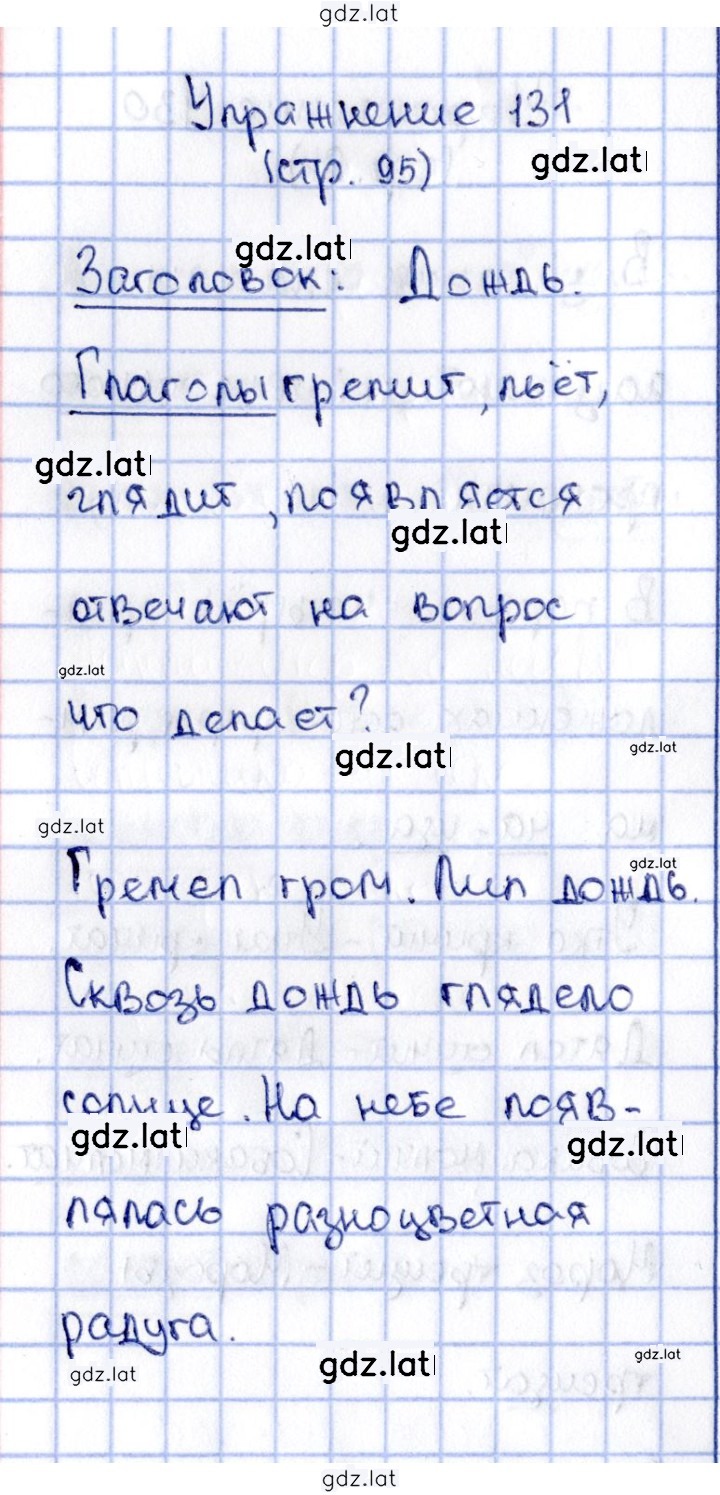 gdz.lat
Упражнение 131
(стр. 95)
gdz.lat
gdz.lat
Заголовок: Дождь.
Глаголы гремит, льёт,
gdz.lat
глядит, появляется
gdz.lat
отвечают на вопрос
gdz.lat
что делает?
gdz.lat
gdz.lat
gdz.lat
gdz.lat
Гремел гром. Лил дождь.
Сквозь дождь глядело
солнце. На небе появ-
gdz.lat
gdz.lat
лялась разноцветная
радуга.
gdz.lat
gdz.lat
gdz.lat
gdz.lat